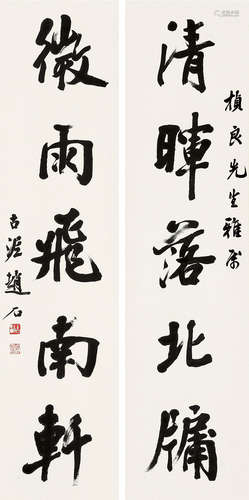 楨良先生雅属
清暉落北牖
微雨飛南軒
古泥趙石